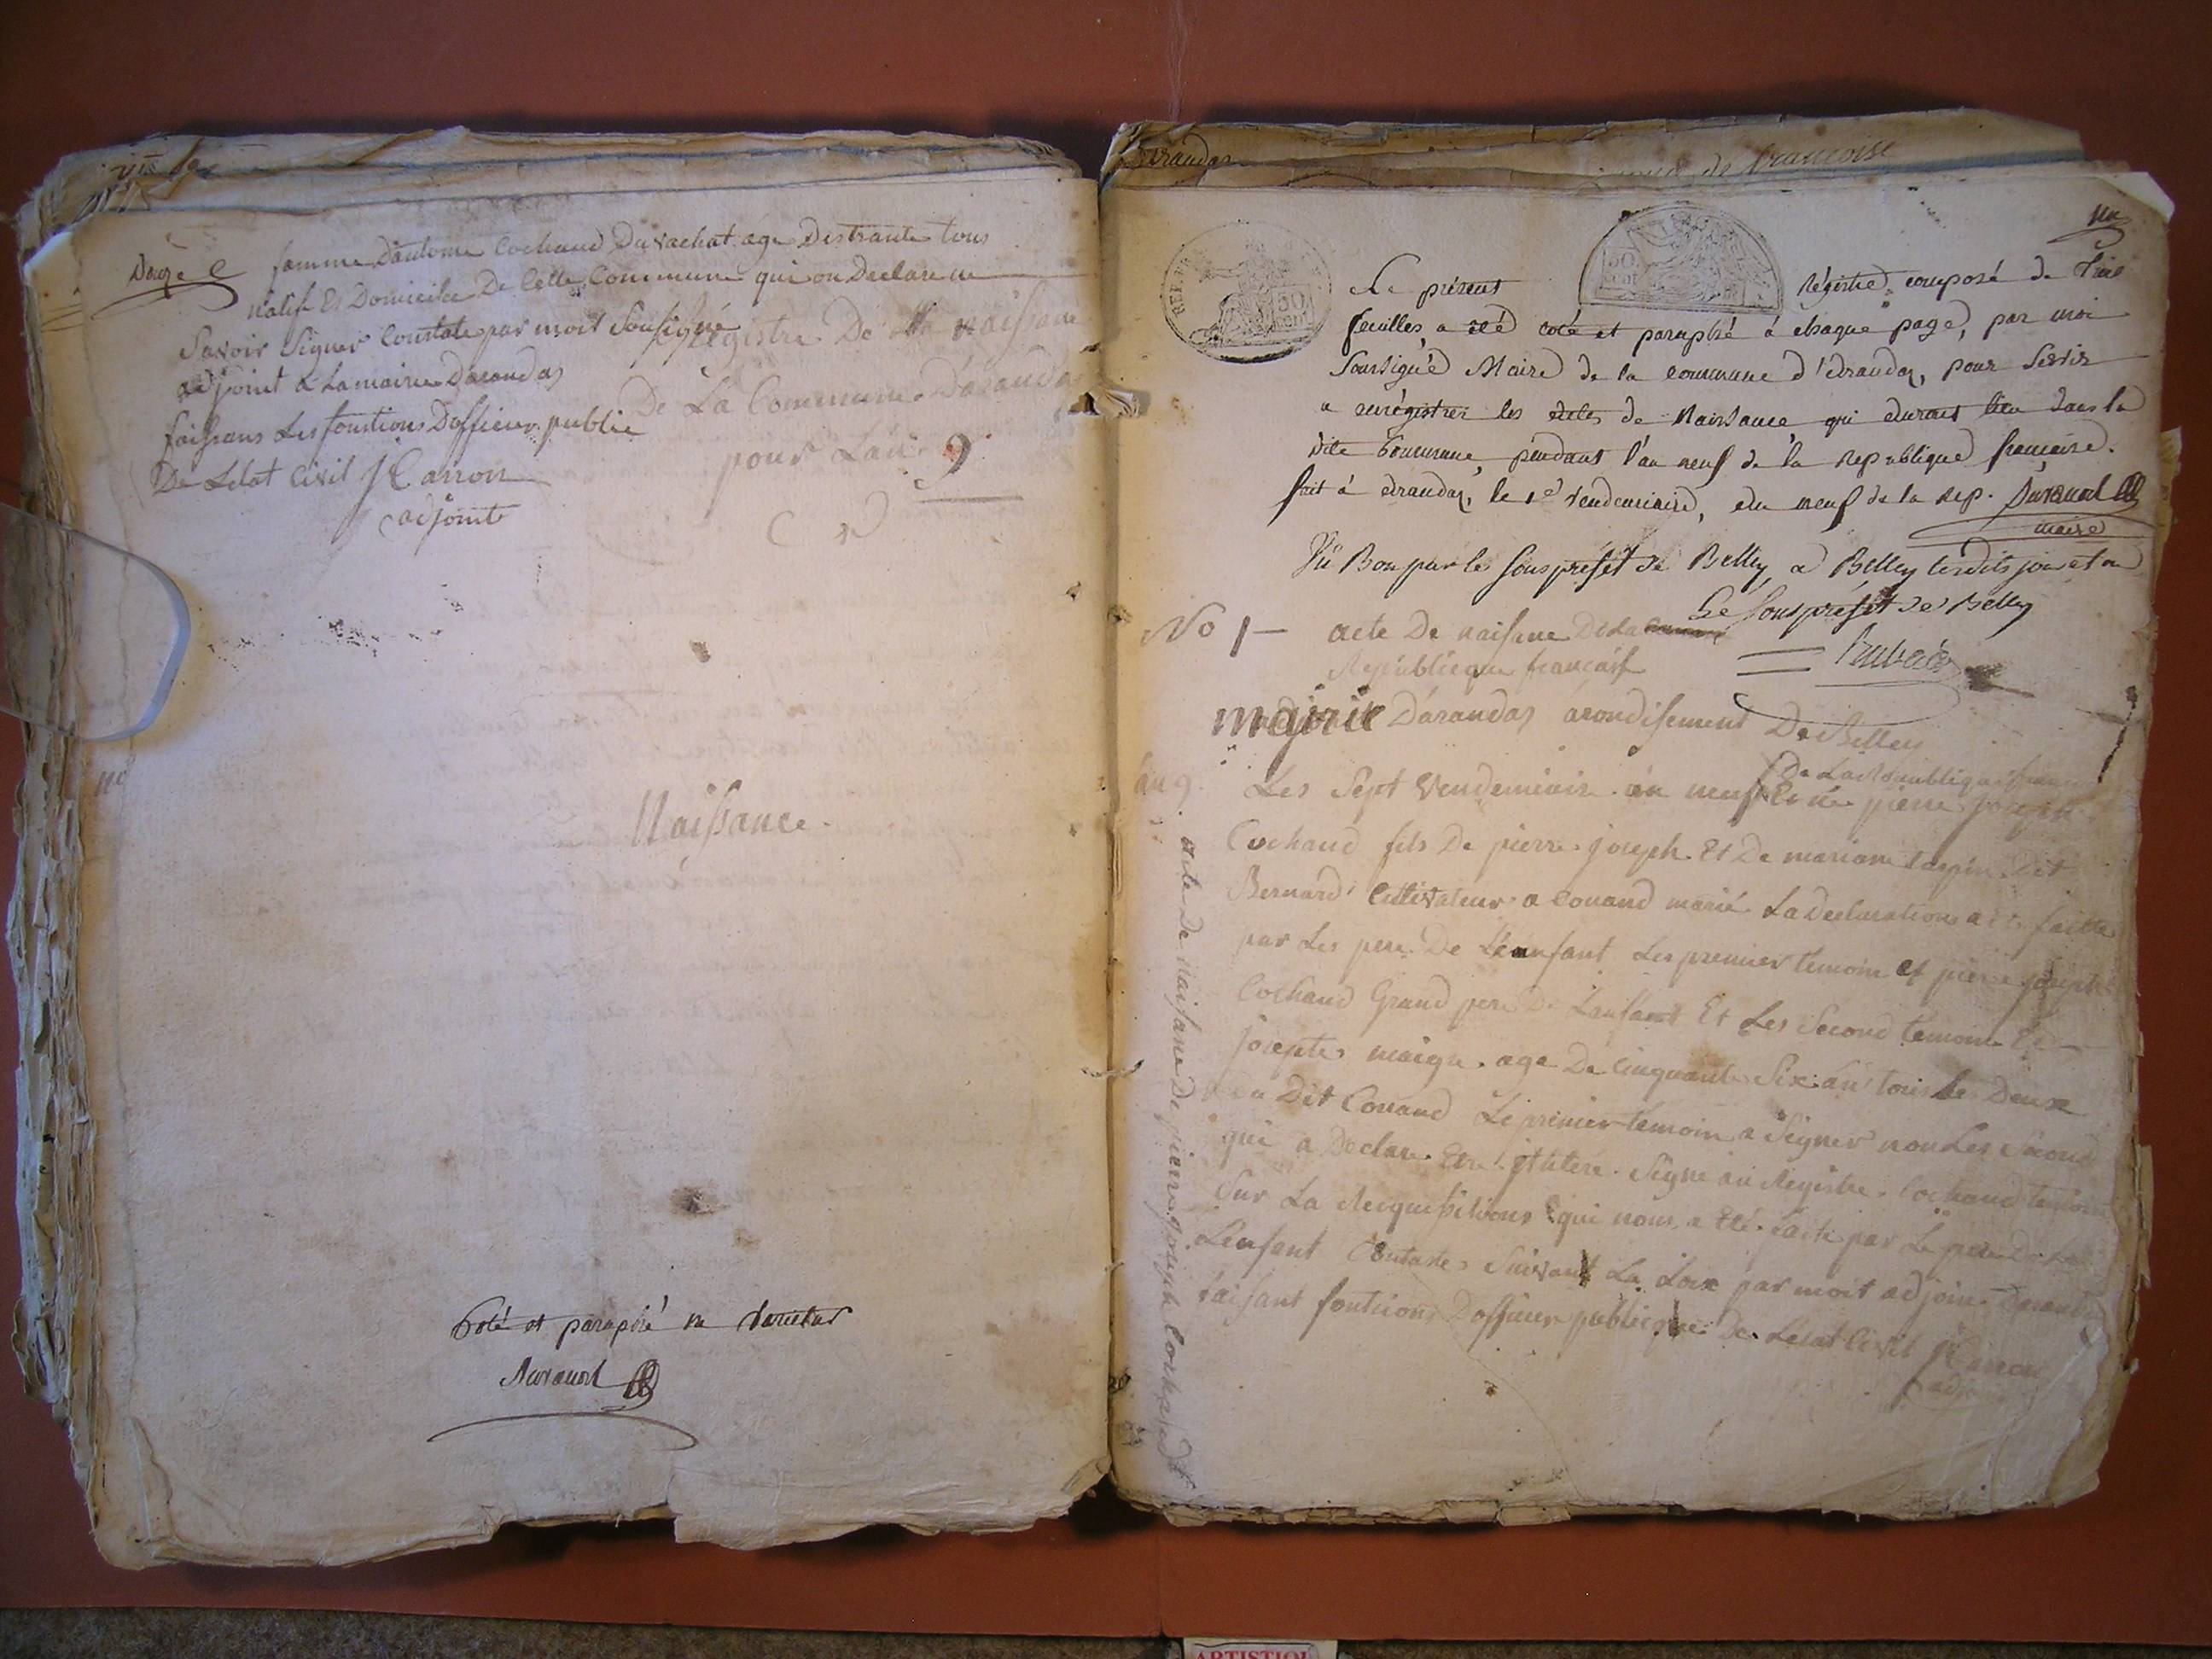 femme Dantoine Cochand Du vachat age Destrante tous
natif Et Domicile De Cette Commune qui on Declare ne
Savoir Signer Constate par moit Sousigné
adjoint a Lamairie Darandas
faisans Les fonctions Dofficier public
De Letat Civil JCarron
adjoint
Registre De naissance
De La Commune Darandas
pour Lan 9
Naissance.
Coté et paraphé
un
Le présent Régistre composé de
feuilles, a été coté et paraphé à chaque page, par moi
Soussigné Maire de la commune d'Arandas, pour Servir
a enrégistrer les actes de Naissance qui auront lieu dans la
dite Commune, pendant l'an neuf de la République française.
fait à Arandas, le 1er Vendemiaire, an neuf de la Rep.
maire
Vu Bon par le Sous préfet de Belley a Belley lesdits jour et an
Le Sous préfet de Belley
No 1 — acte De naissance De La
Republicque française
mairie Darandas arondisement De Belley
De La Republique
an 9. Les Sept Vendemiaire an neuf Est né pierre joseph
Cochand fils De pierre joseph Et De mariane Dit
Bernard Cultivateur a Conand marié La Declaration a été faitte
par Les pere De Lenfant Les premier temoin et pierre joseph
Cochand Grand pere De Lanfant Et Les Second temoin Et
josepte maigre age De Cinquante Six an tous les Deux
Du Dit Conand Le premier temoin a Signer non Les Second
qui a Declare Etre illitere. Signe au Registre. Cochand temoin
Sur La Requesitions qui nous a Eté faite par Le pere De
Lenfant Contaste Suivant La Loix par moit adjoin Darandas
faisant fonctions Dofficier publicque De Letat Civil JCarron
adjoint
acte De Naissance De pierre joseph Cochand